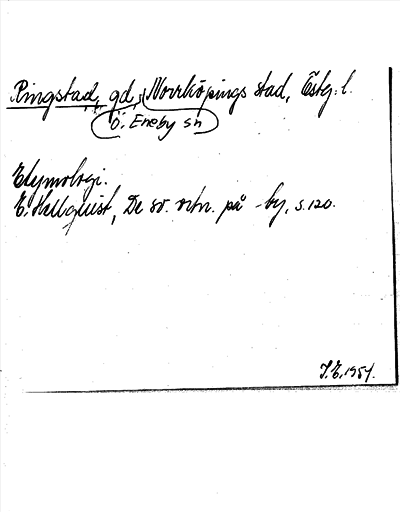 Ringstad, gd, Norrköpings stad, Östg: l.
Ö. Eneby sn
Etymologi.
E. Hellquist, De sv. ortn. på -by, s. 120.
J.E. 1954.